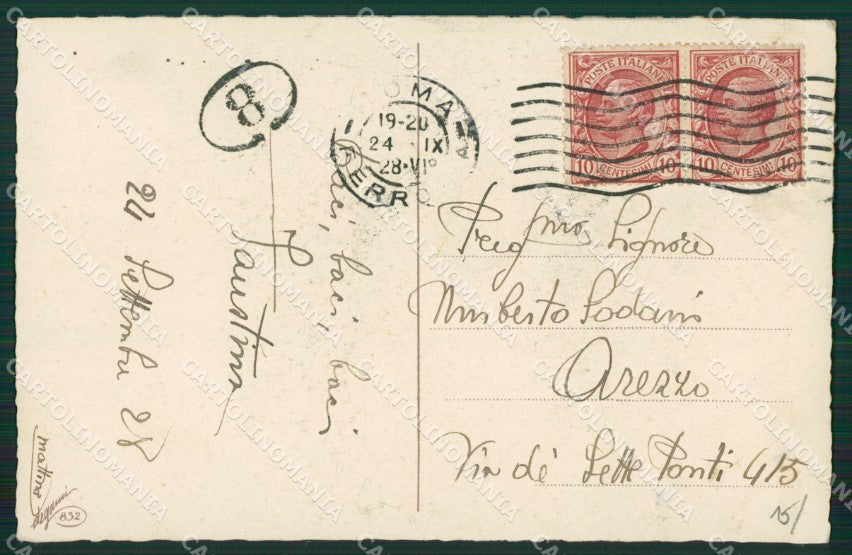 8
ROMA
19-20
24 IX
28·VIº
FERRO
POSTE ITALIANE
10 CENTESIMI 10
POSTE ITALIANE
10 CENTESIMI 10
Baci, baci, baci
Faustina
24 Settembre 28
mattina
Degami
852
Preg.mo Signore
Umberto Sodani
Arezzo
Via de' Sette Ponti 415
15/
CARTOLINOMANIA